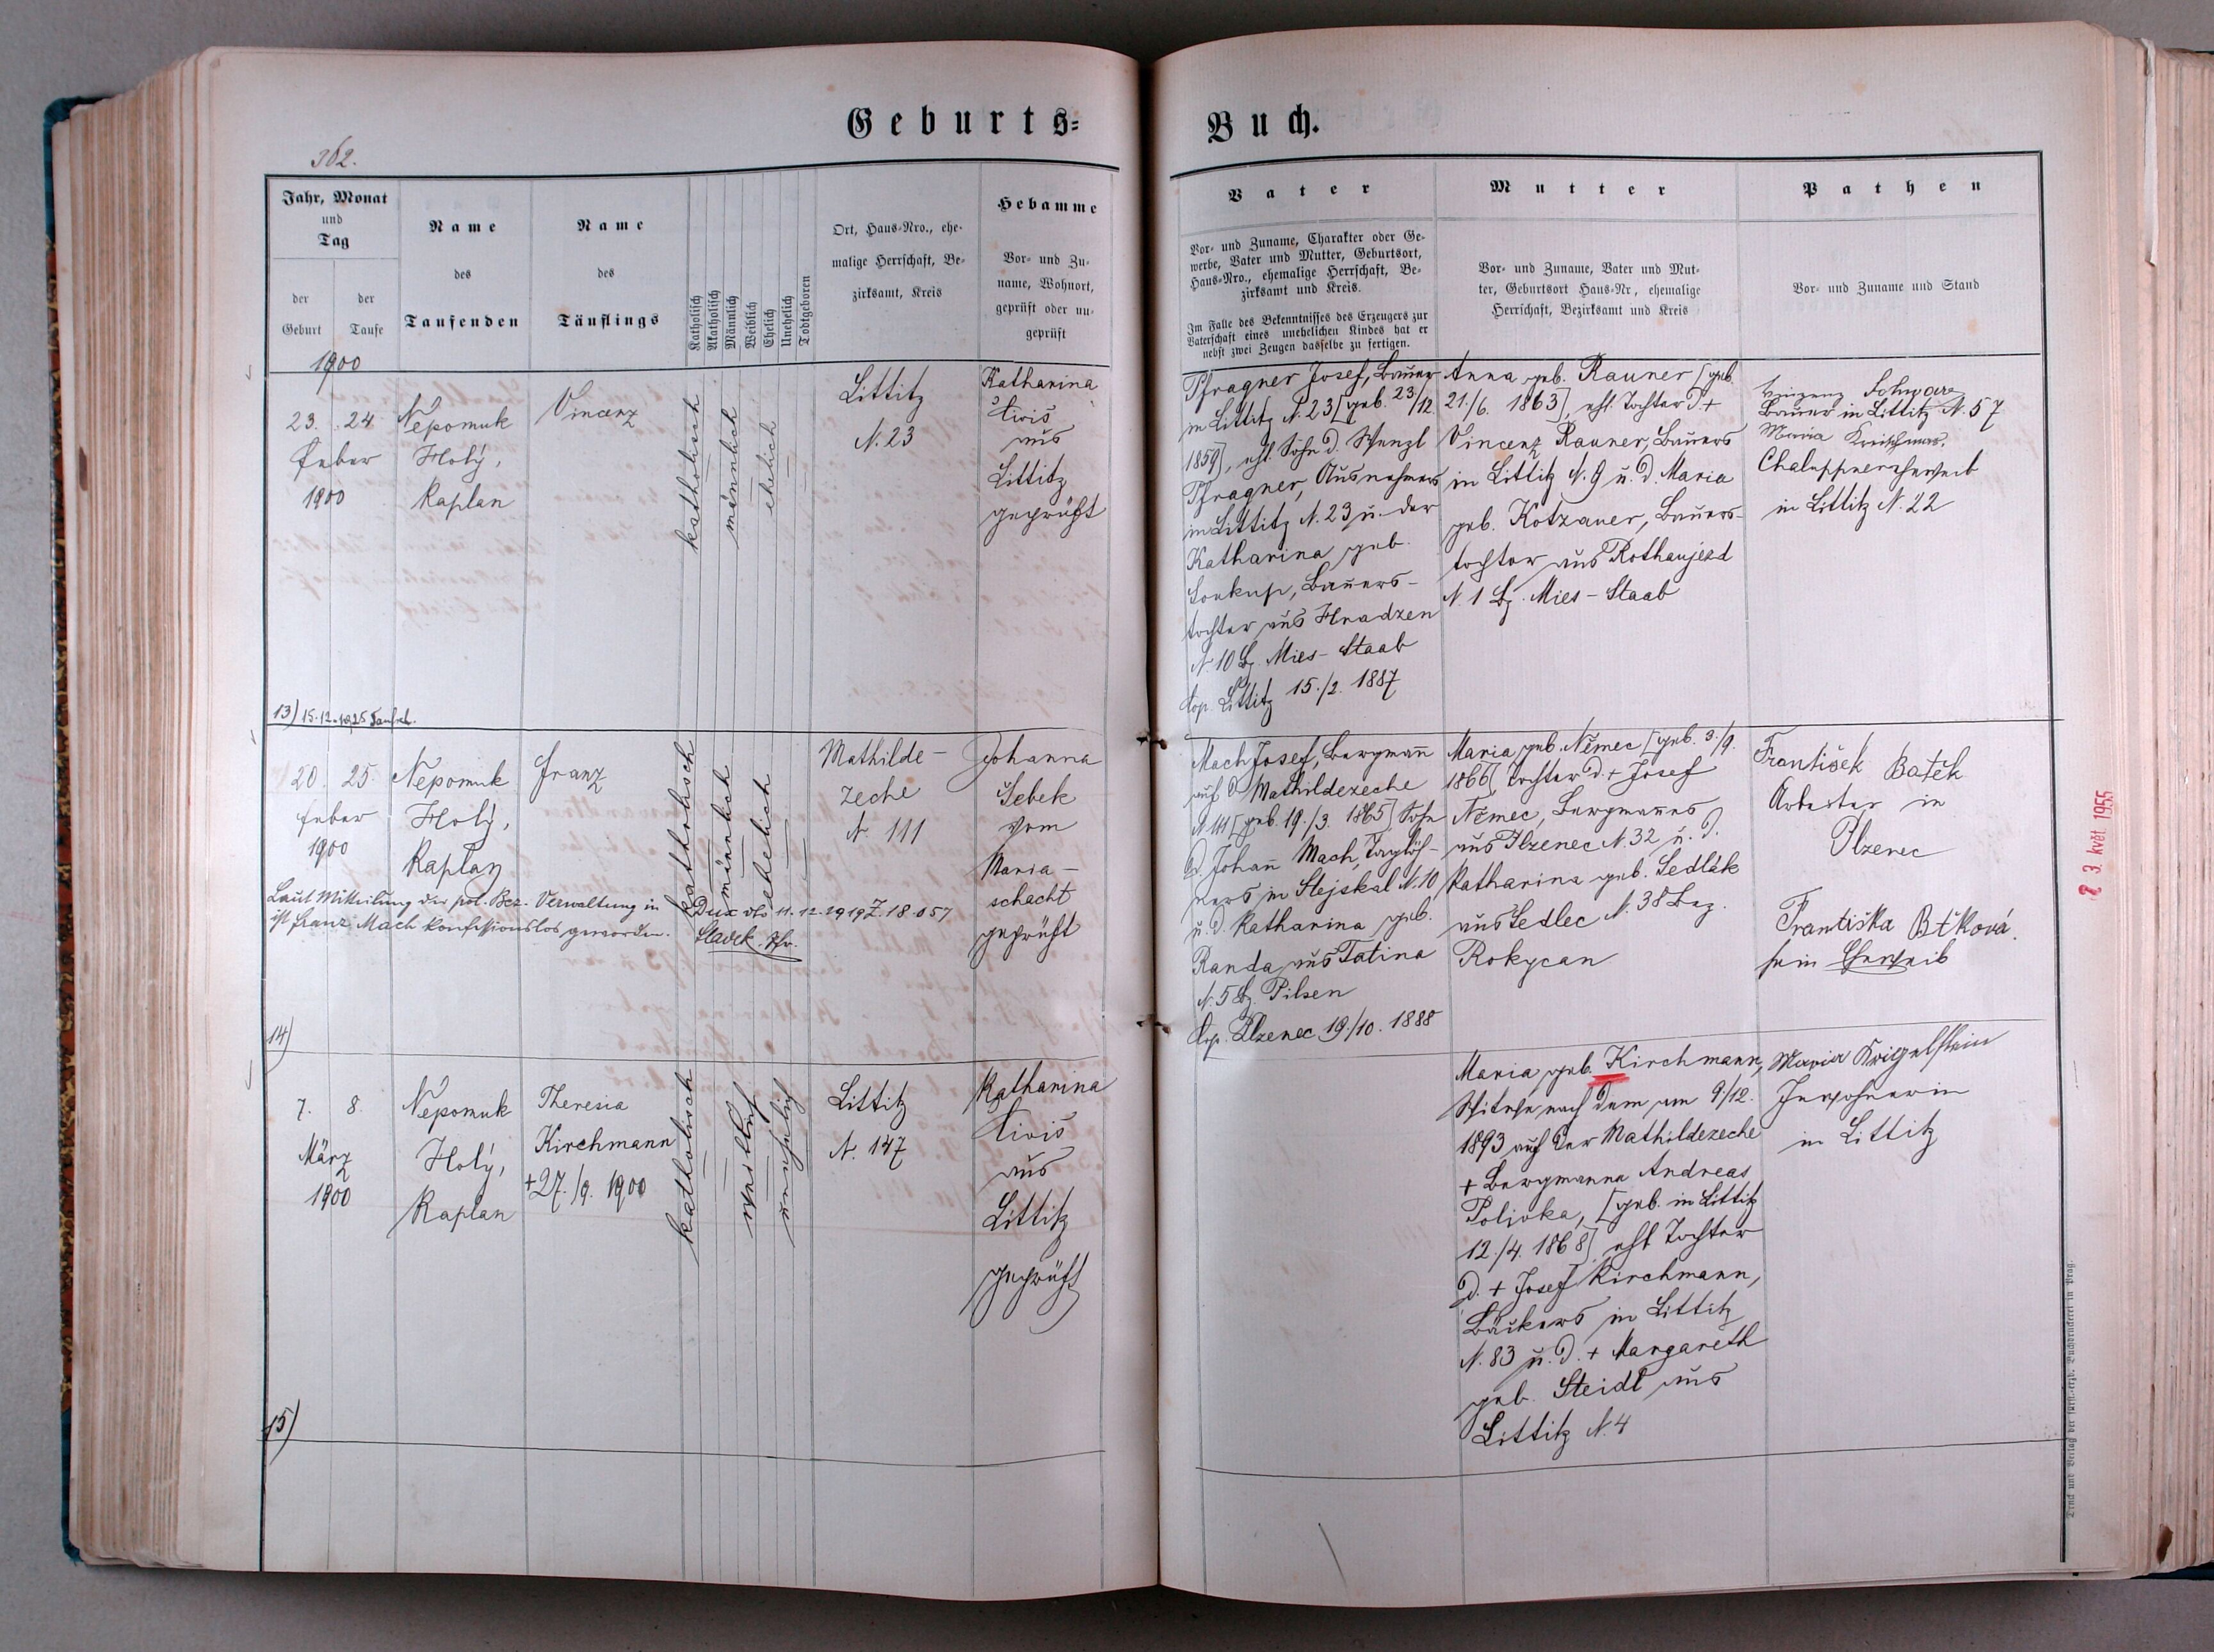 Geburts=
Buch.
362.
Jahr, Monat
und
Tag
der
Geburt
der
Taufe
Name
des
Taufenden
Name
des
Täuflings
Katholisch
Akatholisch
Männlich
Weiblich
Ehelich
Unehelich
Todtgeboren
Ort, Haus-Nro., ehe-
malige Herrschaft, Be-
zirksamt, Kreis
Hebamme
Vor- und Zu-
name, Wohnort,
geprüft oder un-
geprüft
Vater
Vor- und Zuname, Charakter oder Ge-
werbe, Vater und Mutter, Geburtsort,
Haus-Nro., ehemalige Herrschaft, Be-
zirksamt und Kreis.
Im Falle des Bekenntnisses des Erzeugers zur
Vaterschaft eines unehelichen Kindes hat er
nebst zwei Zeugen dasselbe zu fertigen.
Mutter
Vor- und Zuname, Vater und Mut-
ter, Geburtsort Haus-Nr, ehemalige
Herrschaft, Bezirksamt und Kreis
Pathen
Vor- und Zuname und Stand
1900
23. 24.
Feber
1900
Nepomuk
Holý,
Kaplan
Vincenz
katholisch
männlich
ehelich
Littitz
N. 23
Katharina
Tivis
aus
Littitz
geprüft
Pfragner Josef, Bauer
in Littitz N. 23 [geb. 23/12.
1859], ehl. Sohn d. Wenzl
Pfragner, Ausnehmers
in Littitz N. 23 u. der
Katharina geb.
Soukup, Bauers-
tochter aus Hradzen
N. 10 Bz. Mies-Staab
Cop. Littitz 15./2. 1887
Anna geb. Rauner [geb.
21./6. 1863], ehl. Tochter d. +
Vincenz Rauner, Bauers
in Littitz N. 9 u. d. Maria
geb. Kotzauer, Bauers-
tochter aus Rothaujezd
N. 1 Bz. Mies-Staab
Vinzenz Schwarz
Bauer in Littitz N. 57
Maria
Chaluppnersheweib
in Littitz N. 22
13) 15.12.1925 Taufsch.
20. 25.
Feber
1900
Nepomuk
Holý,
Kaplan
Franz
katholisch
männlich
ehelich
Mathilde-
zeche
N. 111
Johanna
Šebek
vom
Maria-
schacht
geprüft
Laut Mitteilung der pol. Bez. Verwaltung in Dux dto 11.12.1919 Z. 18.057
ist Franz Mach konfessionslos geworden. Sladek. Pfr.
Mach Josef, Bergmann
auf d. Mathildezeche
N. 111 [geb. 19./3. 1865] Sohn
d. Johann Mach, Taglöh-
ners in Stejskal N. 10
u. d. Katharina geb.
Randa aus Tatina
N. 5 Bz. Pilsen
Cop. Plzenec 19./10. 1888
Maria geb. Němec [geb. 3./9.
1866] Tochter d. + Josef
Němec, Bergmannes
aus Plzenec N. 32 u. d.
Katharina geb. Sedlák
aus Sedlec N. 38 Bez.
Rokycan
František Baťek
Arbeiter in
Plzenec
Františka Btková
sein Eheweib
14)
7. 8.
März
1900
Nepomuk
Holý,
Kaplan
Theresia
Kirchmann
+ 27./9. 1900
katholisch
weiblich
unehelich
Littitz
N. 147
Katharina
Tivis
aus
Littitz
geprüft
Maria geb. Kirchmann,
Witwe nach dem am 9/12.
1893 auf der Mathildezeche
+ Bergmanne Andreas
Polivka, [geb. in Littitz
12./4. 1868] ehl. Tochter
d. + Josef Kirchmann,
Bäckers in Littitz
N. 83 u. d. + Margareth
geb. Steidl aus
Littitz N. 4
Maria Krigelstein
Inwohnerin
in Littitz
15)
3. květ. 1955
Druck und Verlag der fürst.-erzb. Buchdruckerei in Prag.